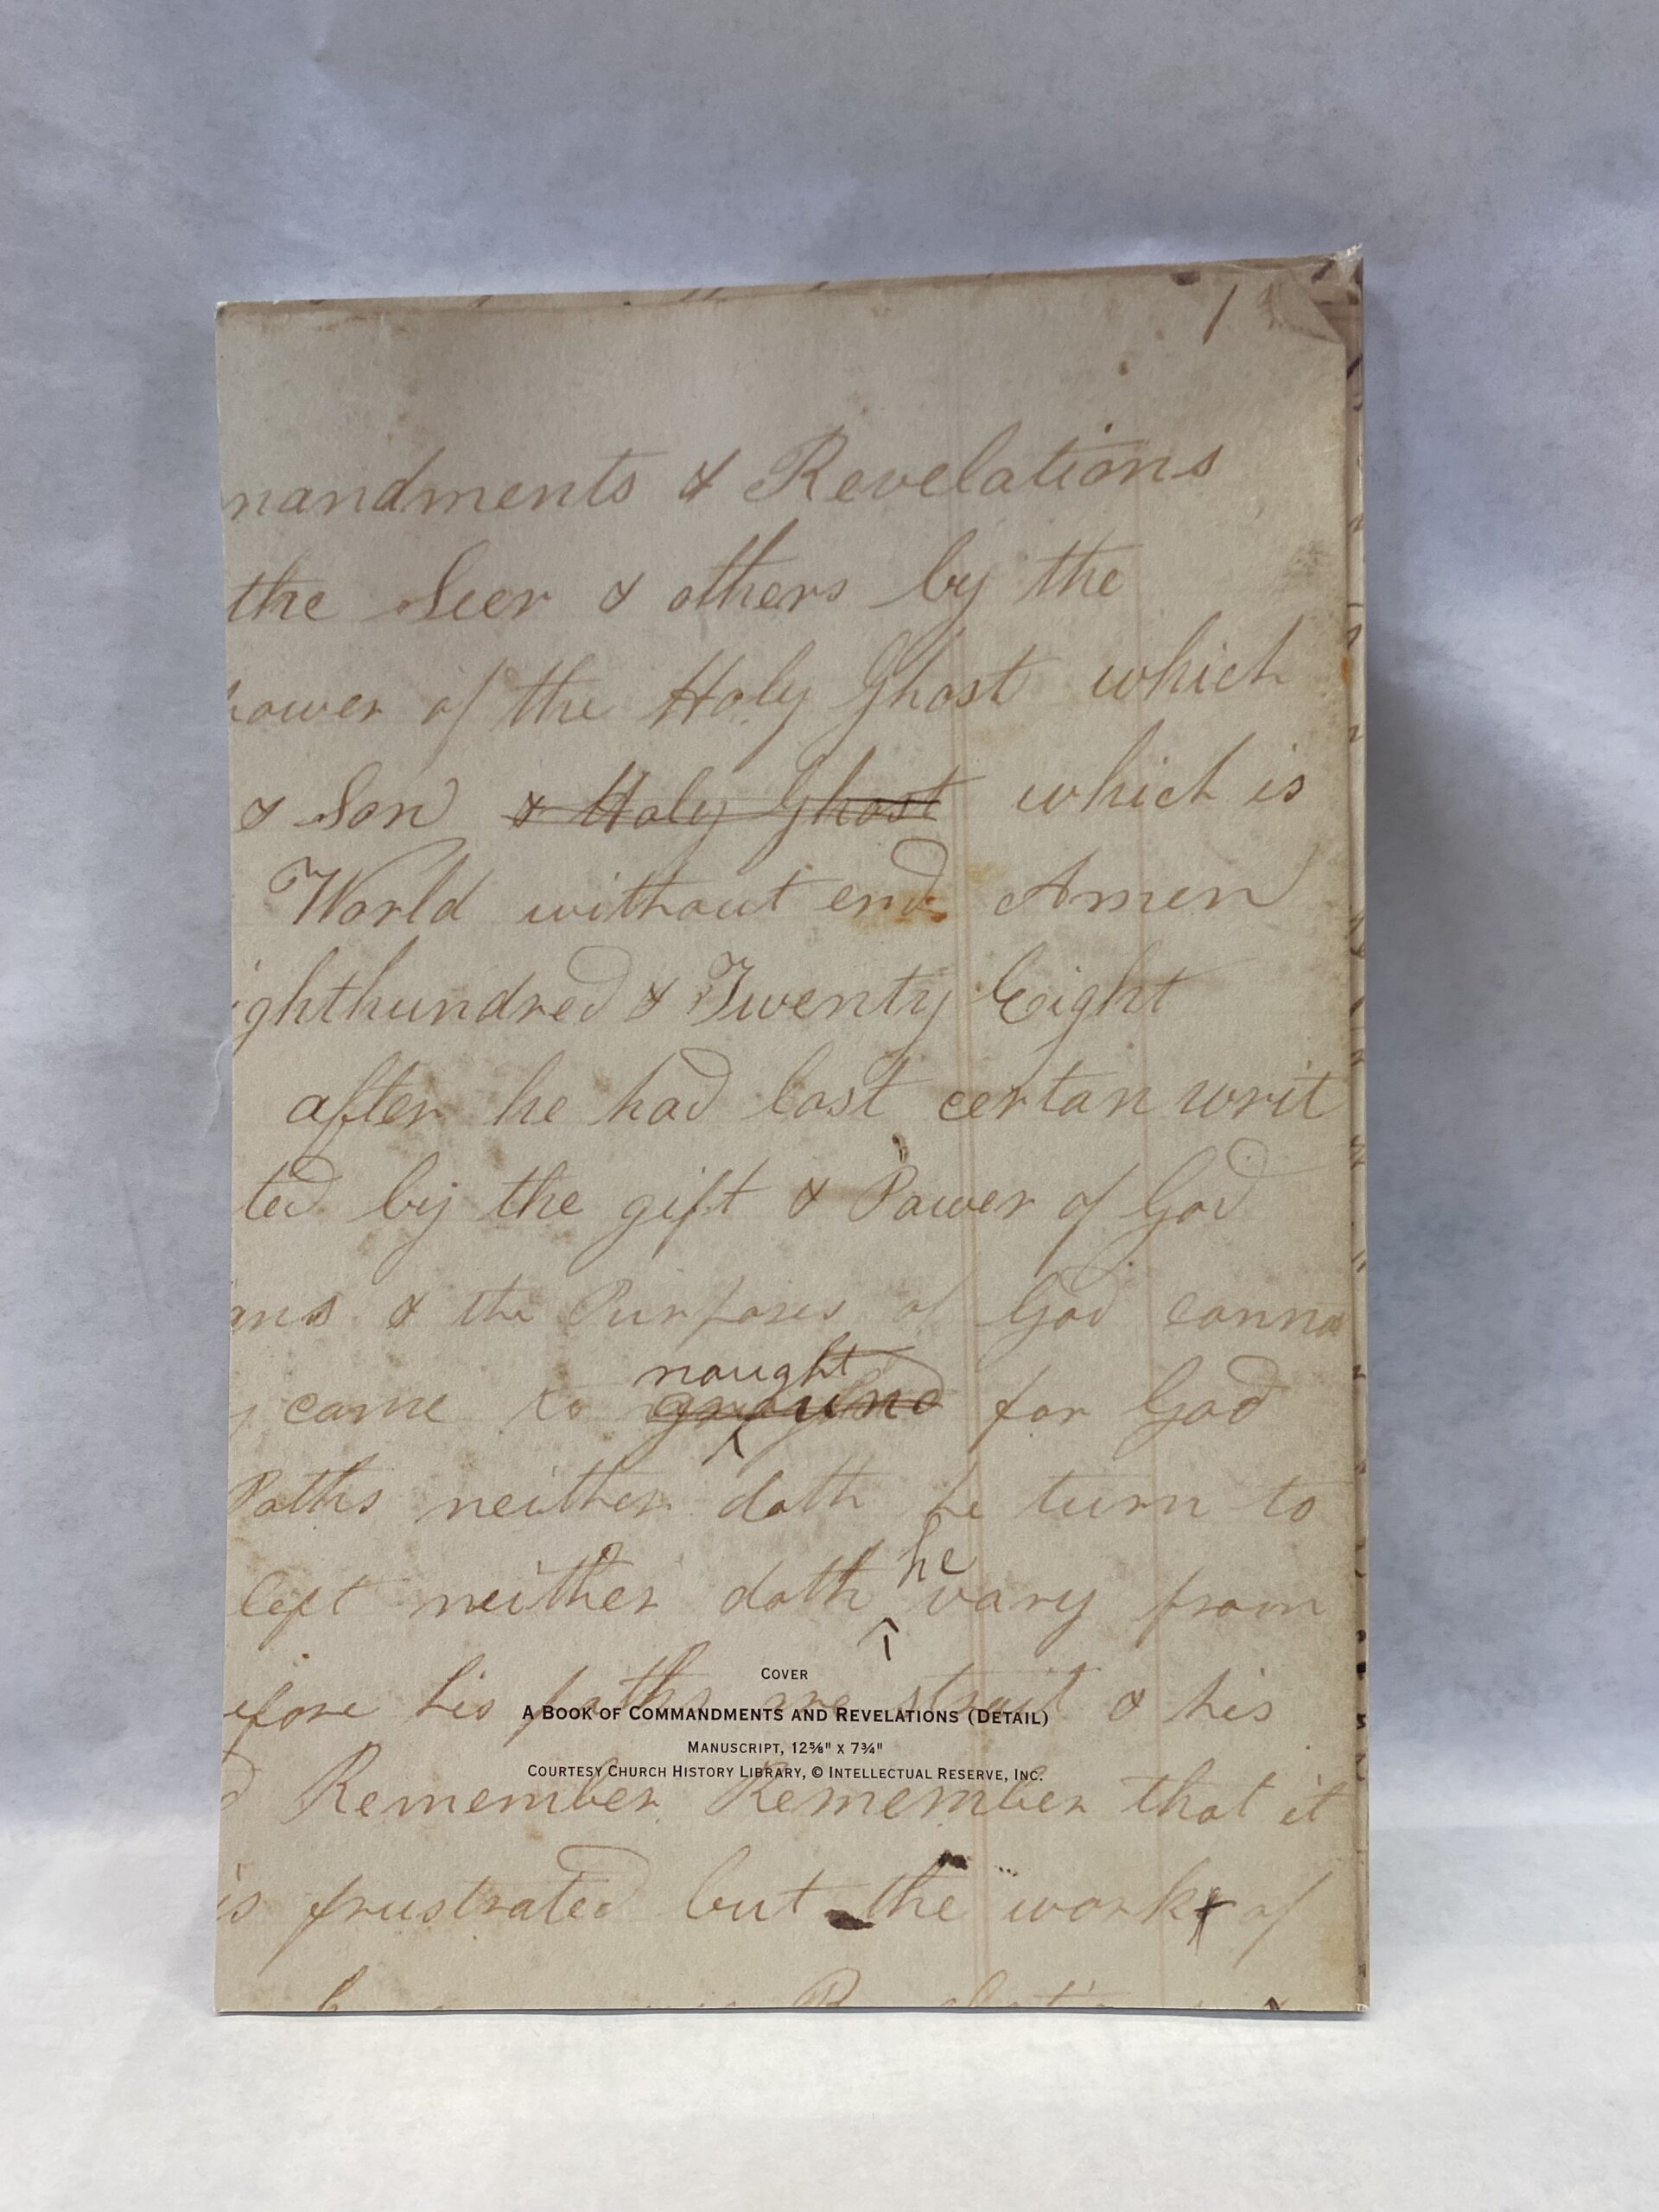 1
mandments & Revelations
the Seer & others by the
power of the Holy Ghost which
& Son & Holy Ghost which is
World without end Amen
ighthundred & Twenty Eight
after he had lost certan writ
ted by the gift & Power of God
ans & the Purposes of God canno
naught
come to ground for God
Paths neither doth he turn to
he
left neither doth vary from
efore his paths are strait & his
COVER
A BOOK OF COMMANDMENTS AND REVELATIONS (DETAIL)
MANUSCRIPT, 12⅝" X 7¾"
COURTESY CHURCH HISTORY LIBRARY, © INTELLECTUAL RESERVE, INC.
d Remember Remember that it
is frustrated but the work of